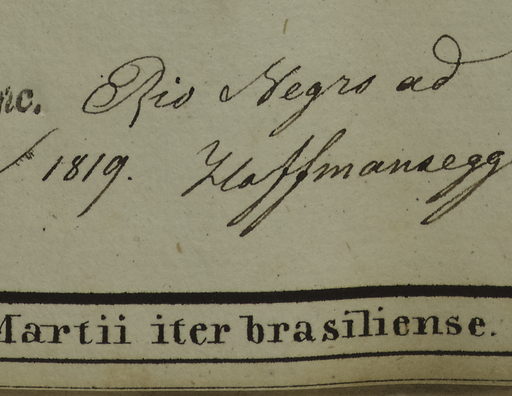 nc. Rio Negro ad
1819. Hoffmansegg
Martii iter brasiliense.